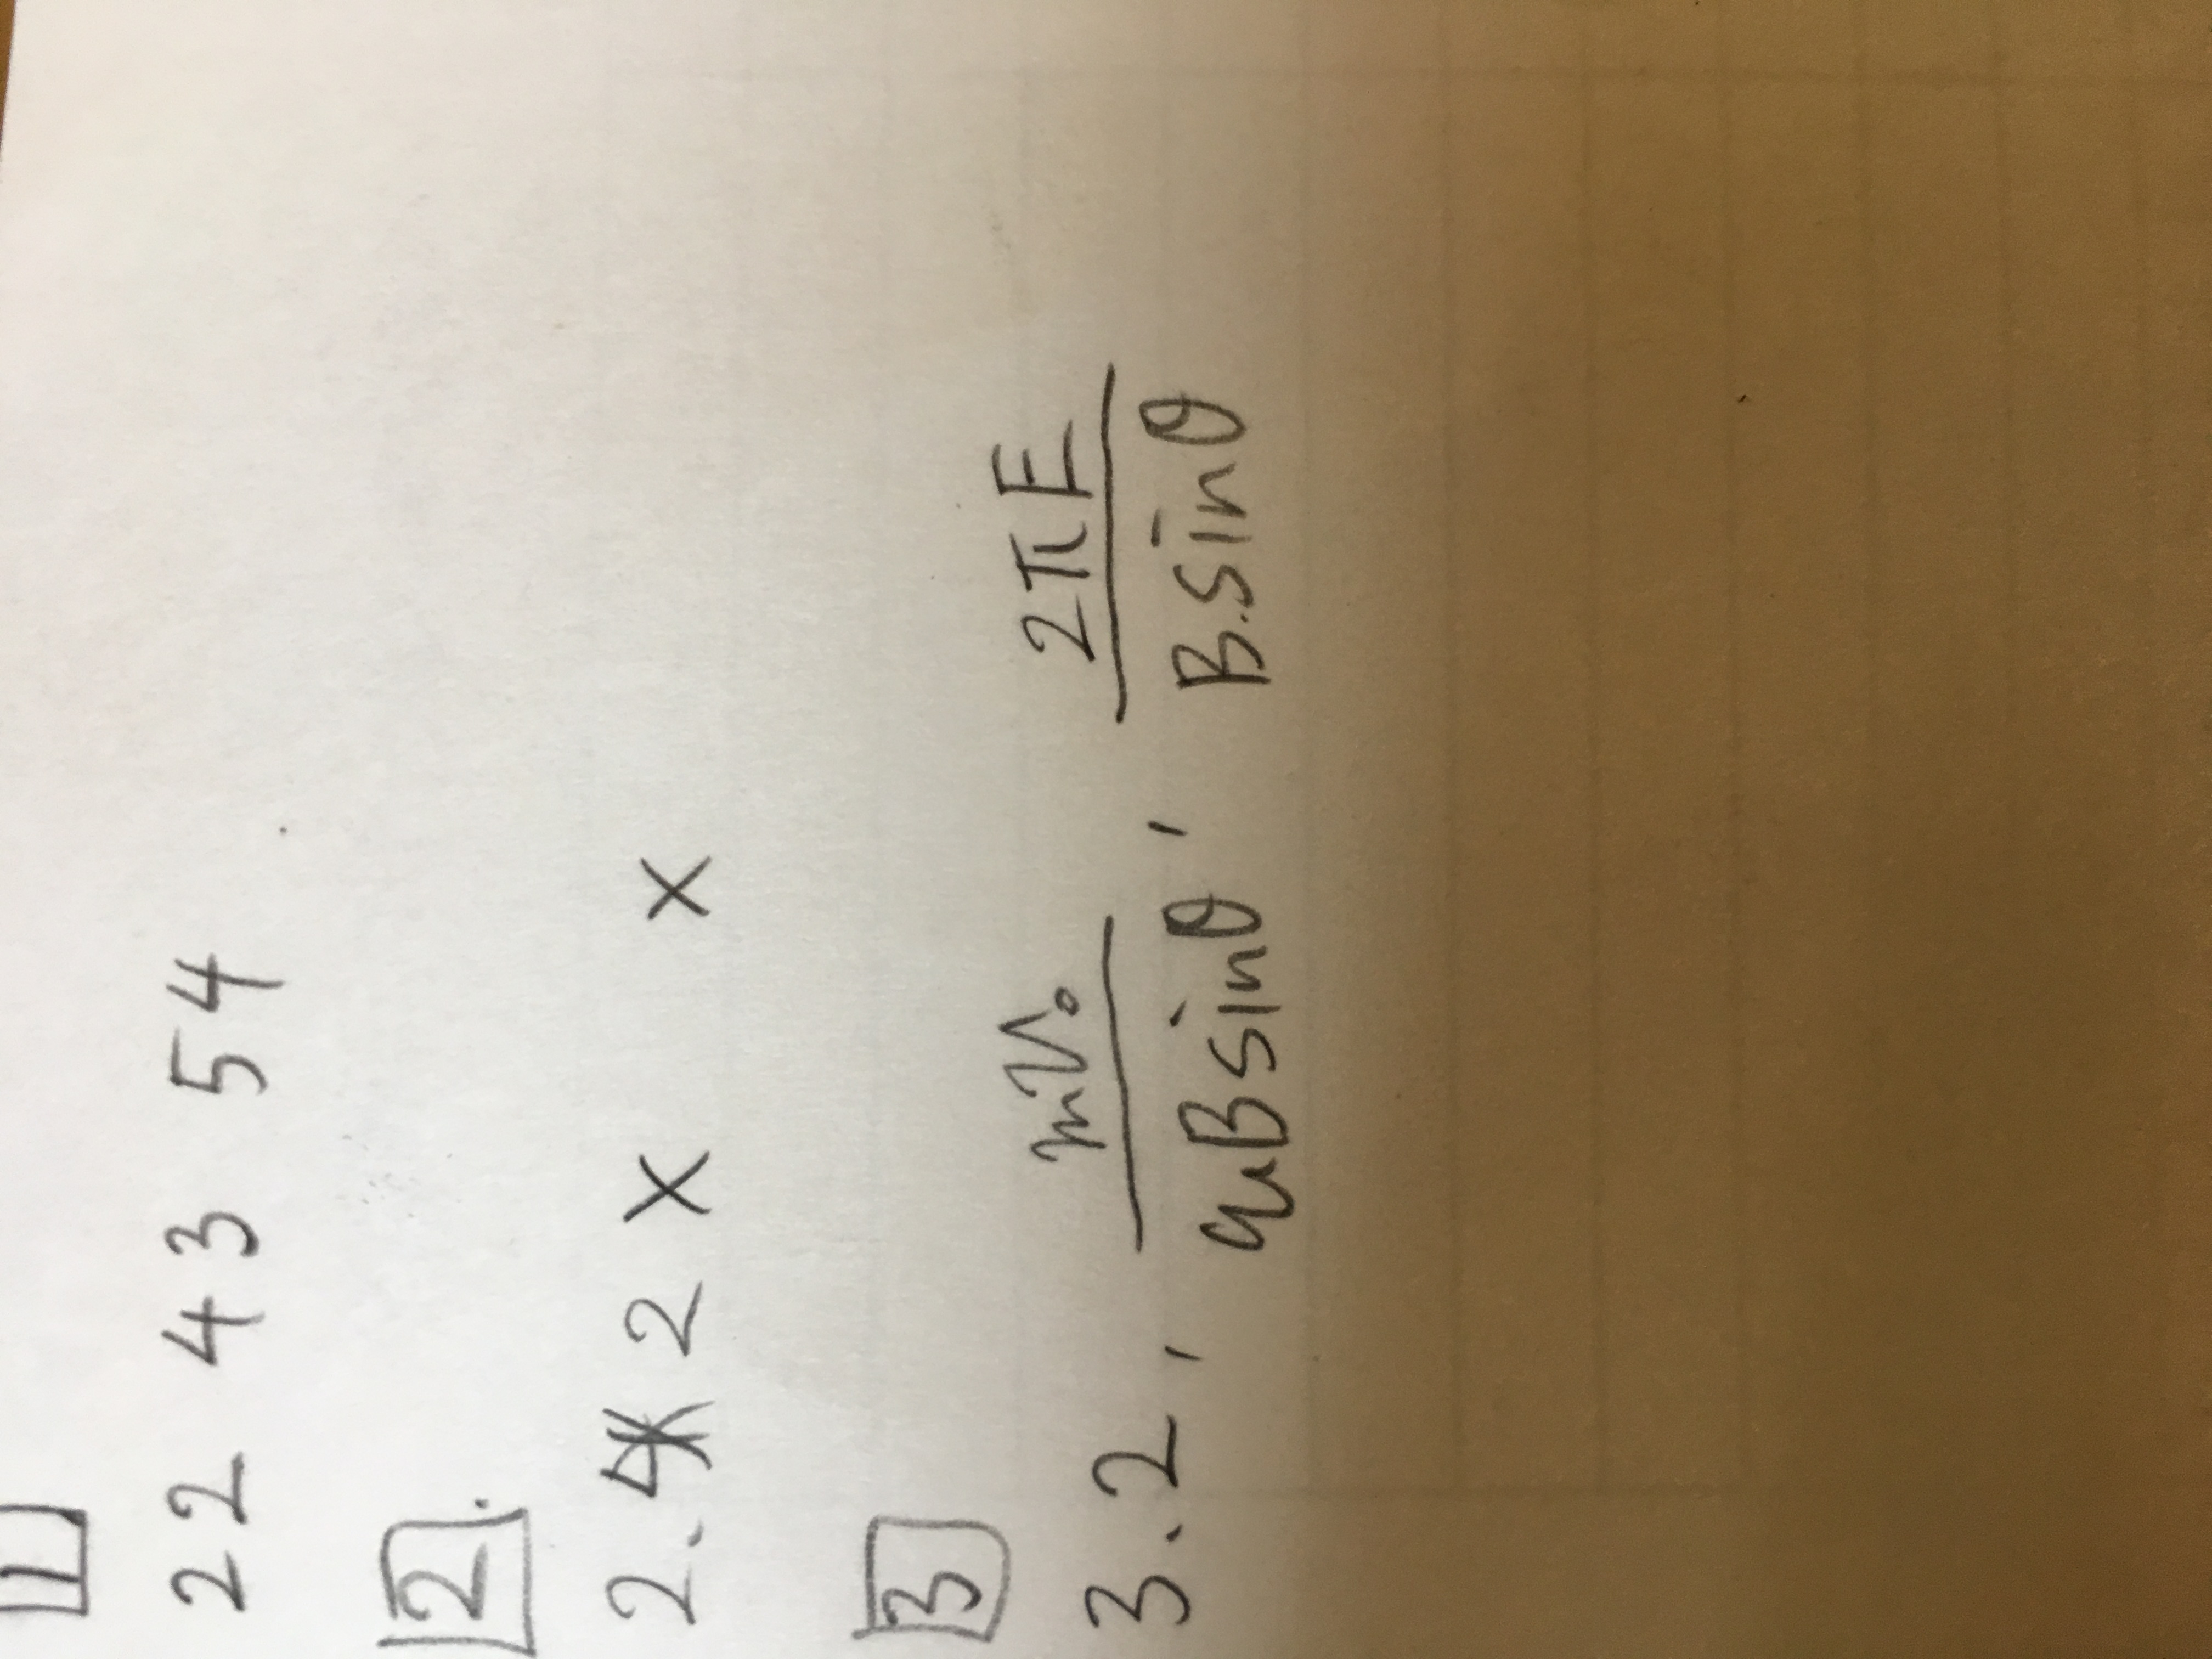 1
2 2 4 3 5 4
2.
2. 4 2 X X
3
3. 2, mV₀/qB sinθ, 2πE/B.sinθ